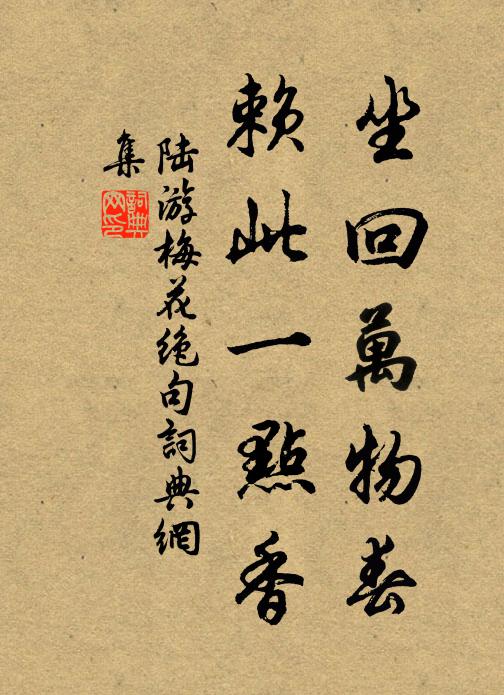 坐回萬物春
賴此一點香
陸游梅花絶句詞典網
集
詞典网印